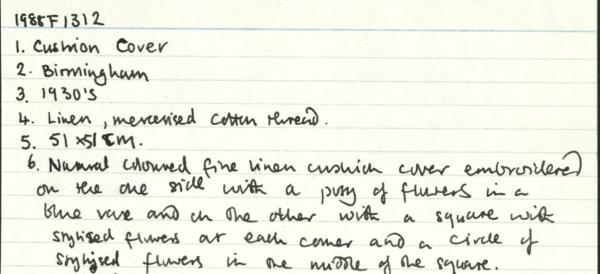 1985F1312
1. Cushion Cover
2. Birmingham
3. 1930's
4. Linen, mercerised cotton thread.
5. 51 x 51 cm.
6. Natural coloured fine linen cushion cover embroidered
on the one side with a posy of flowers in a
blue vase and on the other with a square with
stylised flowers at each corner and a circle of
stylised flowers in the middle of the square.